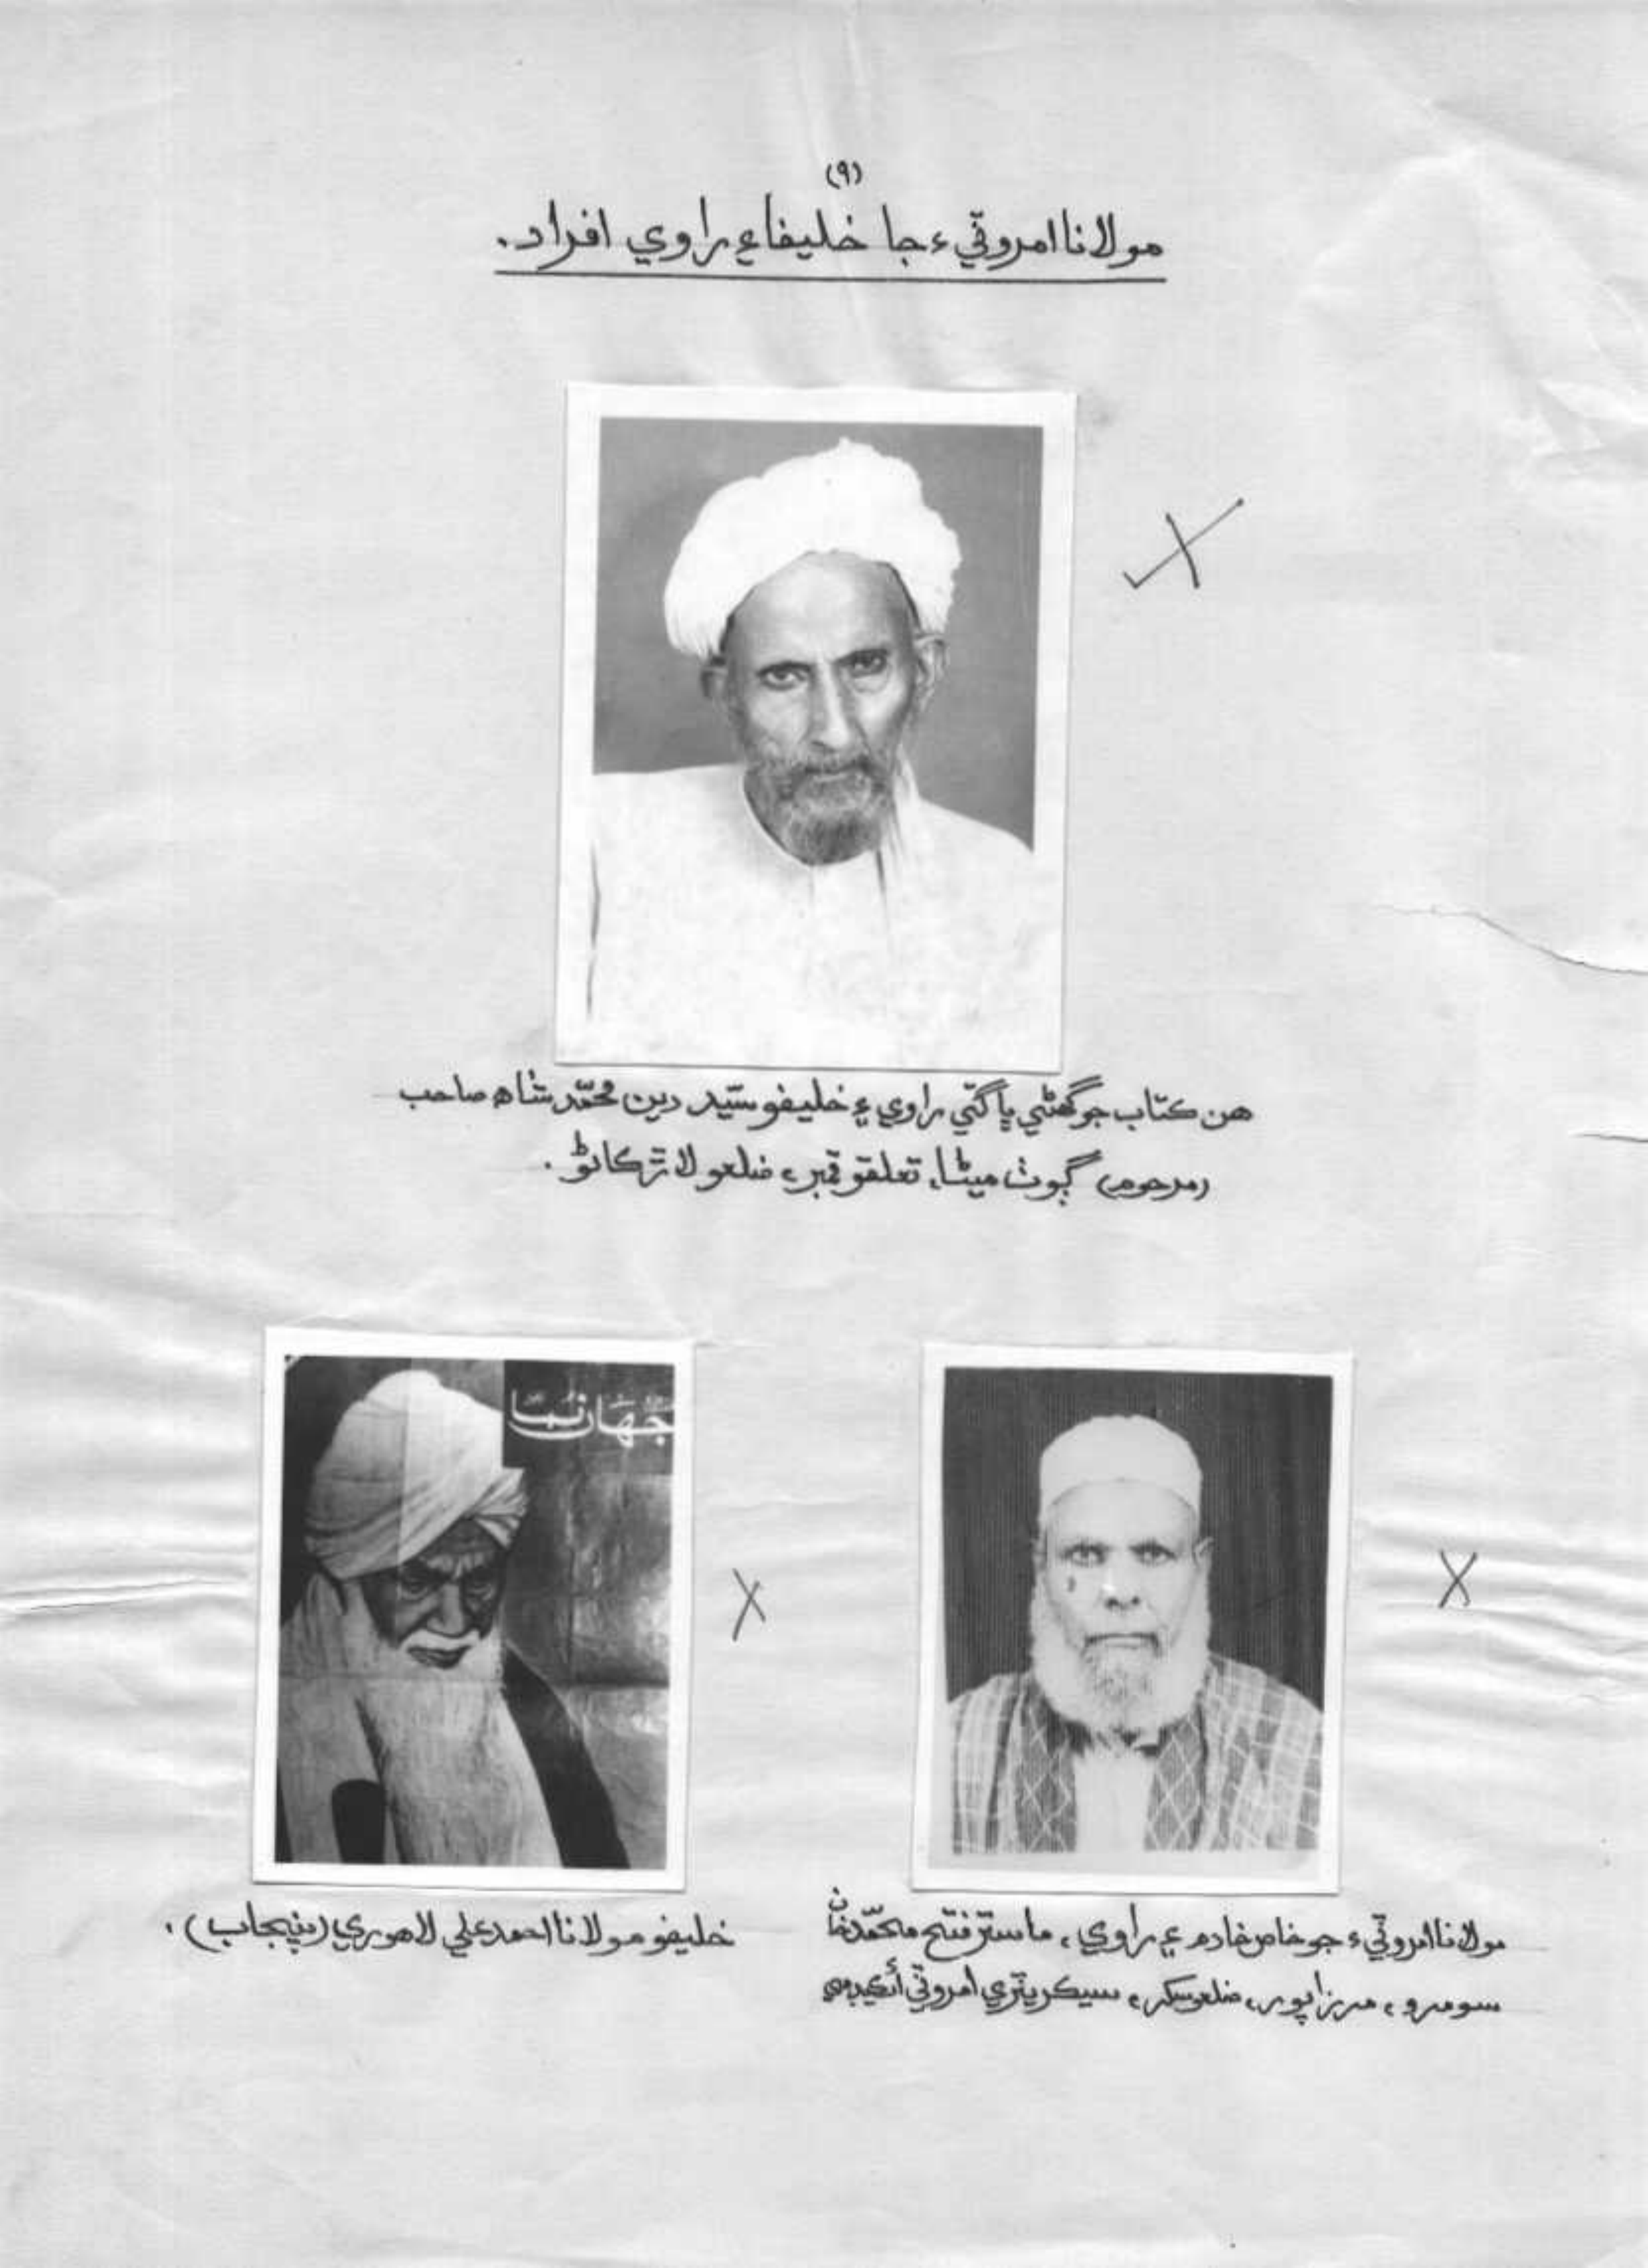 (٩)
مولانا امروٽيءَ جا خليفا ۽ راوي افراد.
هن ڪتاب جو گھڻي ڀاڱي راوي ۽ خليفو سيّد دين محمّد شاھ صاحب
(مرحوم) ڳوٺ ميٽا، تعلقو قمبر، ضلعو لاڙڪاڻو.
جهان نما
مولانا امروٽيءَ جو خاص خادم ۽ راوي، ماستر فتح محمّد خان
سومرو، مرزاپور، ضلعو سکر، سيڪريٽري امروٽي اڪيڊمي
خليفو مولانا احمد علي لاهوري (پنجاب).